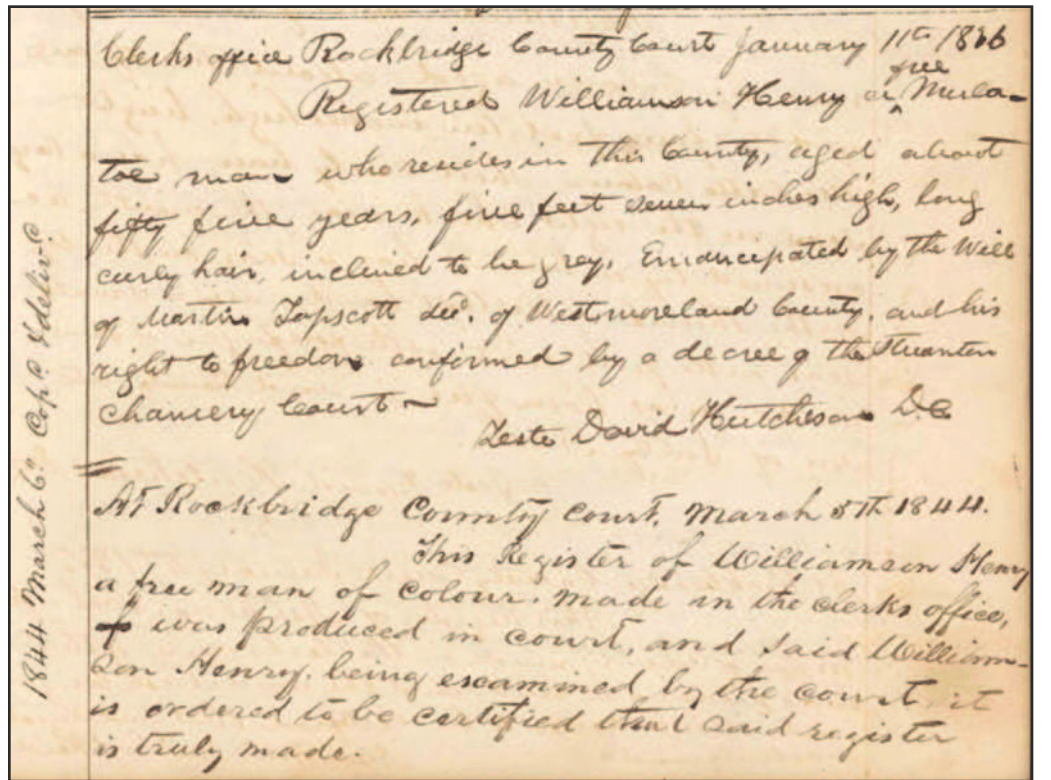 Clerks office Rockbridge County Court January 11th
free
Registered Williamson Henry a ^ Mula-
toe man who resides in this County, aged about
fifty five years, five feet seven inches high, long
curly hair, inclined to be grey, Emancipated by the Will
of Martin Tapscott decd. of Westmoreland County, and his
right to freedom confirmed by a decree of the Staunton
Chancery Court ~
Teste David Hutcheson D.C
At Rockbridge County Court, March 5th 1844.
This Register of Williamson Henry
a free man of colour. made in the clerks office,
was produced in court, and said William-
son Henry, being examined by the court, it
is ordered to be certified that said register
is truly made.
1844 March Co. Copd. & delivd.